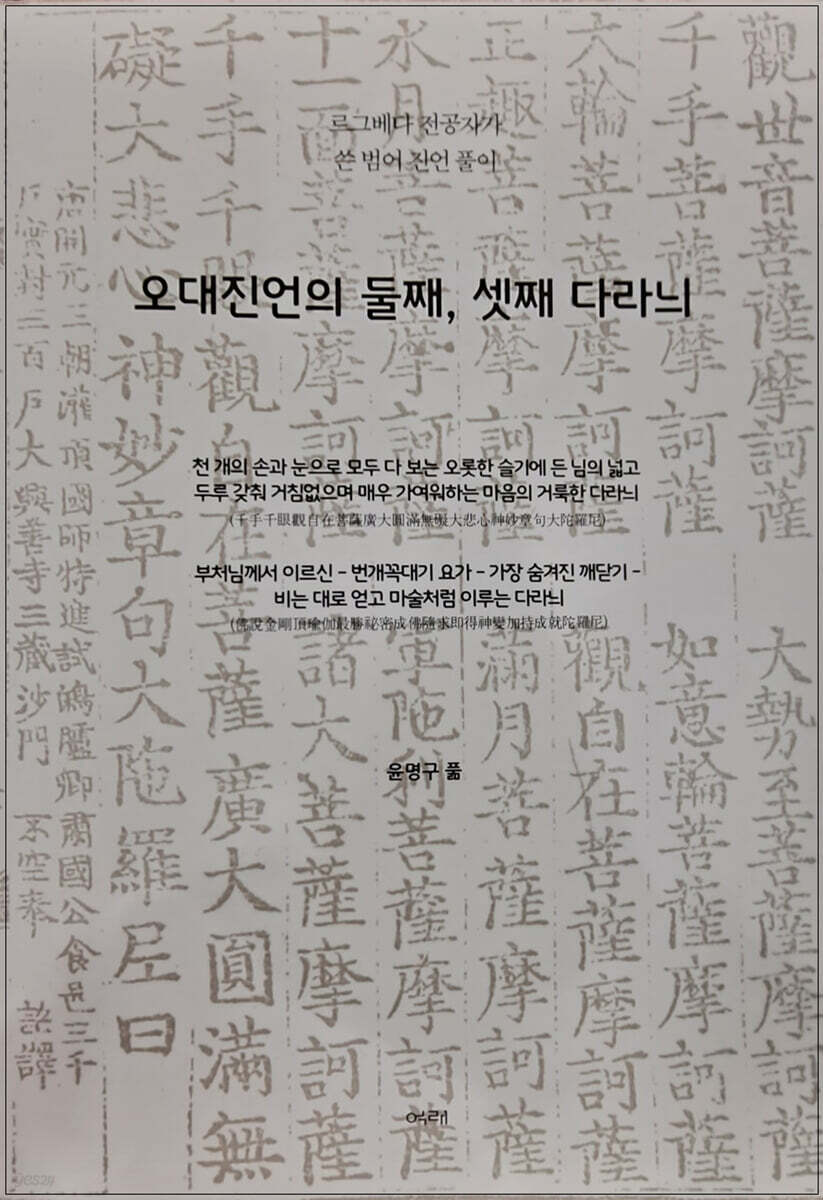 르그베다 전공자가
쓴 범어 진언 풀이
오대진언의 둘째, 셋째 다라늬
천 개의 손과 눈으로 모두 다 보는 오롯한 슬기에 든 님의 넓고
두루 갖춰 거침없으며 매우 가여워하는 마음의 거룩한 다라늬
(千手千眼觀自在菩薩廣大圓滿無礙大悲心神妙章句大陀羅尼)
부처님께서 이르신 – 번개꼭대기 요가 – 가장 숨겨진 깨닫기 –
비는 대로 얻고 마술처럼 이루는 다라늬
(佛說金剛頂瑜伽最勝祕密成佛隨求即得神變加持成就陀羅尼)
윤명구 풂
여래
觀世音菩薩摩訶薩 大勢至菩薩摩訶薩
千手菩薩摩訶薩 如意輪菩薩摩訶薩
大輪菩薩摩訶薩 觀自在菩薩摩訶薩
正趣菩薩摩訶薩 滿月菩薩摩訶薩
水月菩薩摩訶薩 軍陁利菩薩摩訶薩
十一面菩薩摩訶薩 諸大菩薩摩訶薩
千手千眼觀自在菩薩廣大圓滿無
礙大悲心神妙章句大陁羅尼曰
唐開元三朝灌頂國師特進試鴻臚卿肅國公食邑三千
戶實封三百戶大興善寺三藏沙門 不空奉 詔譯